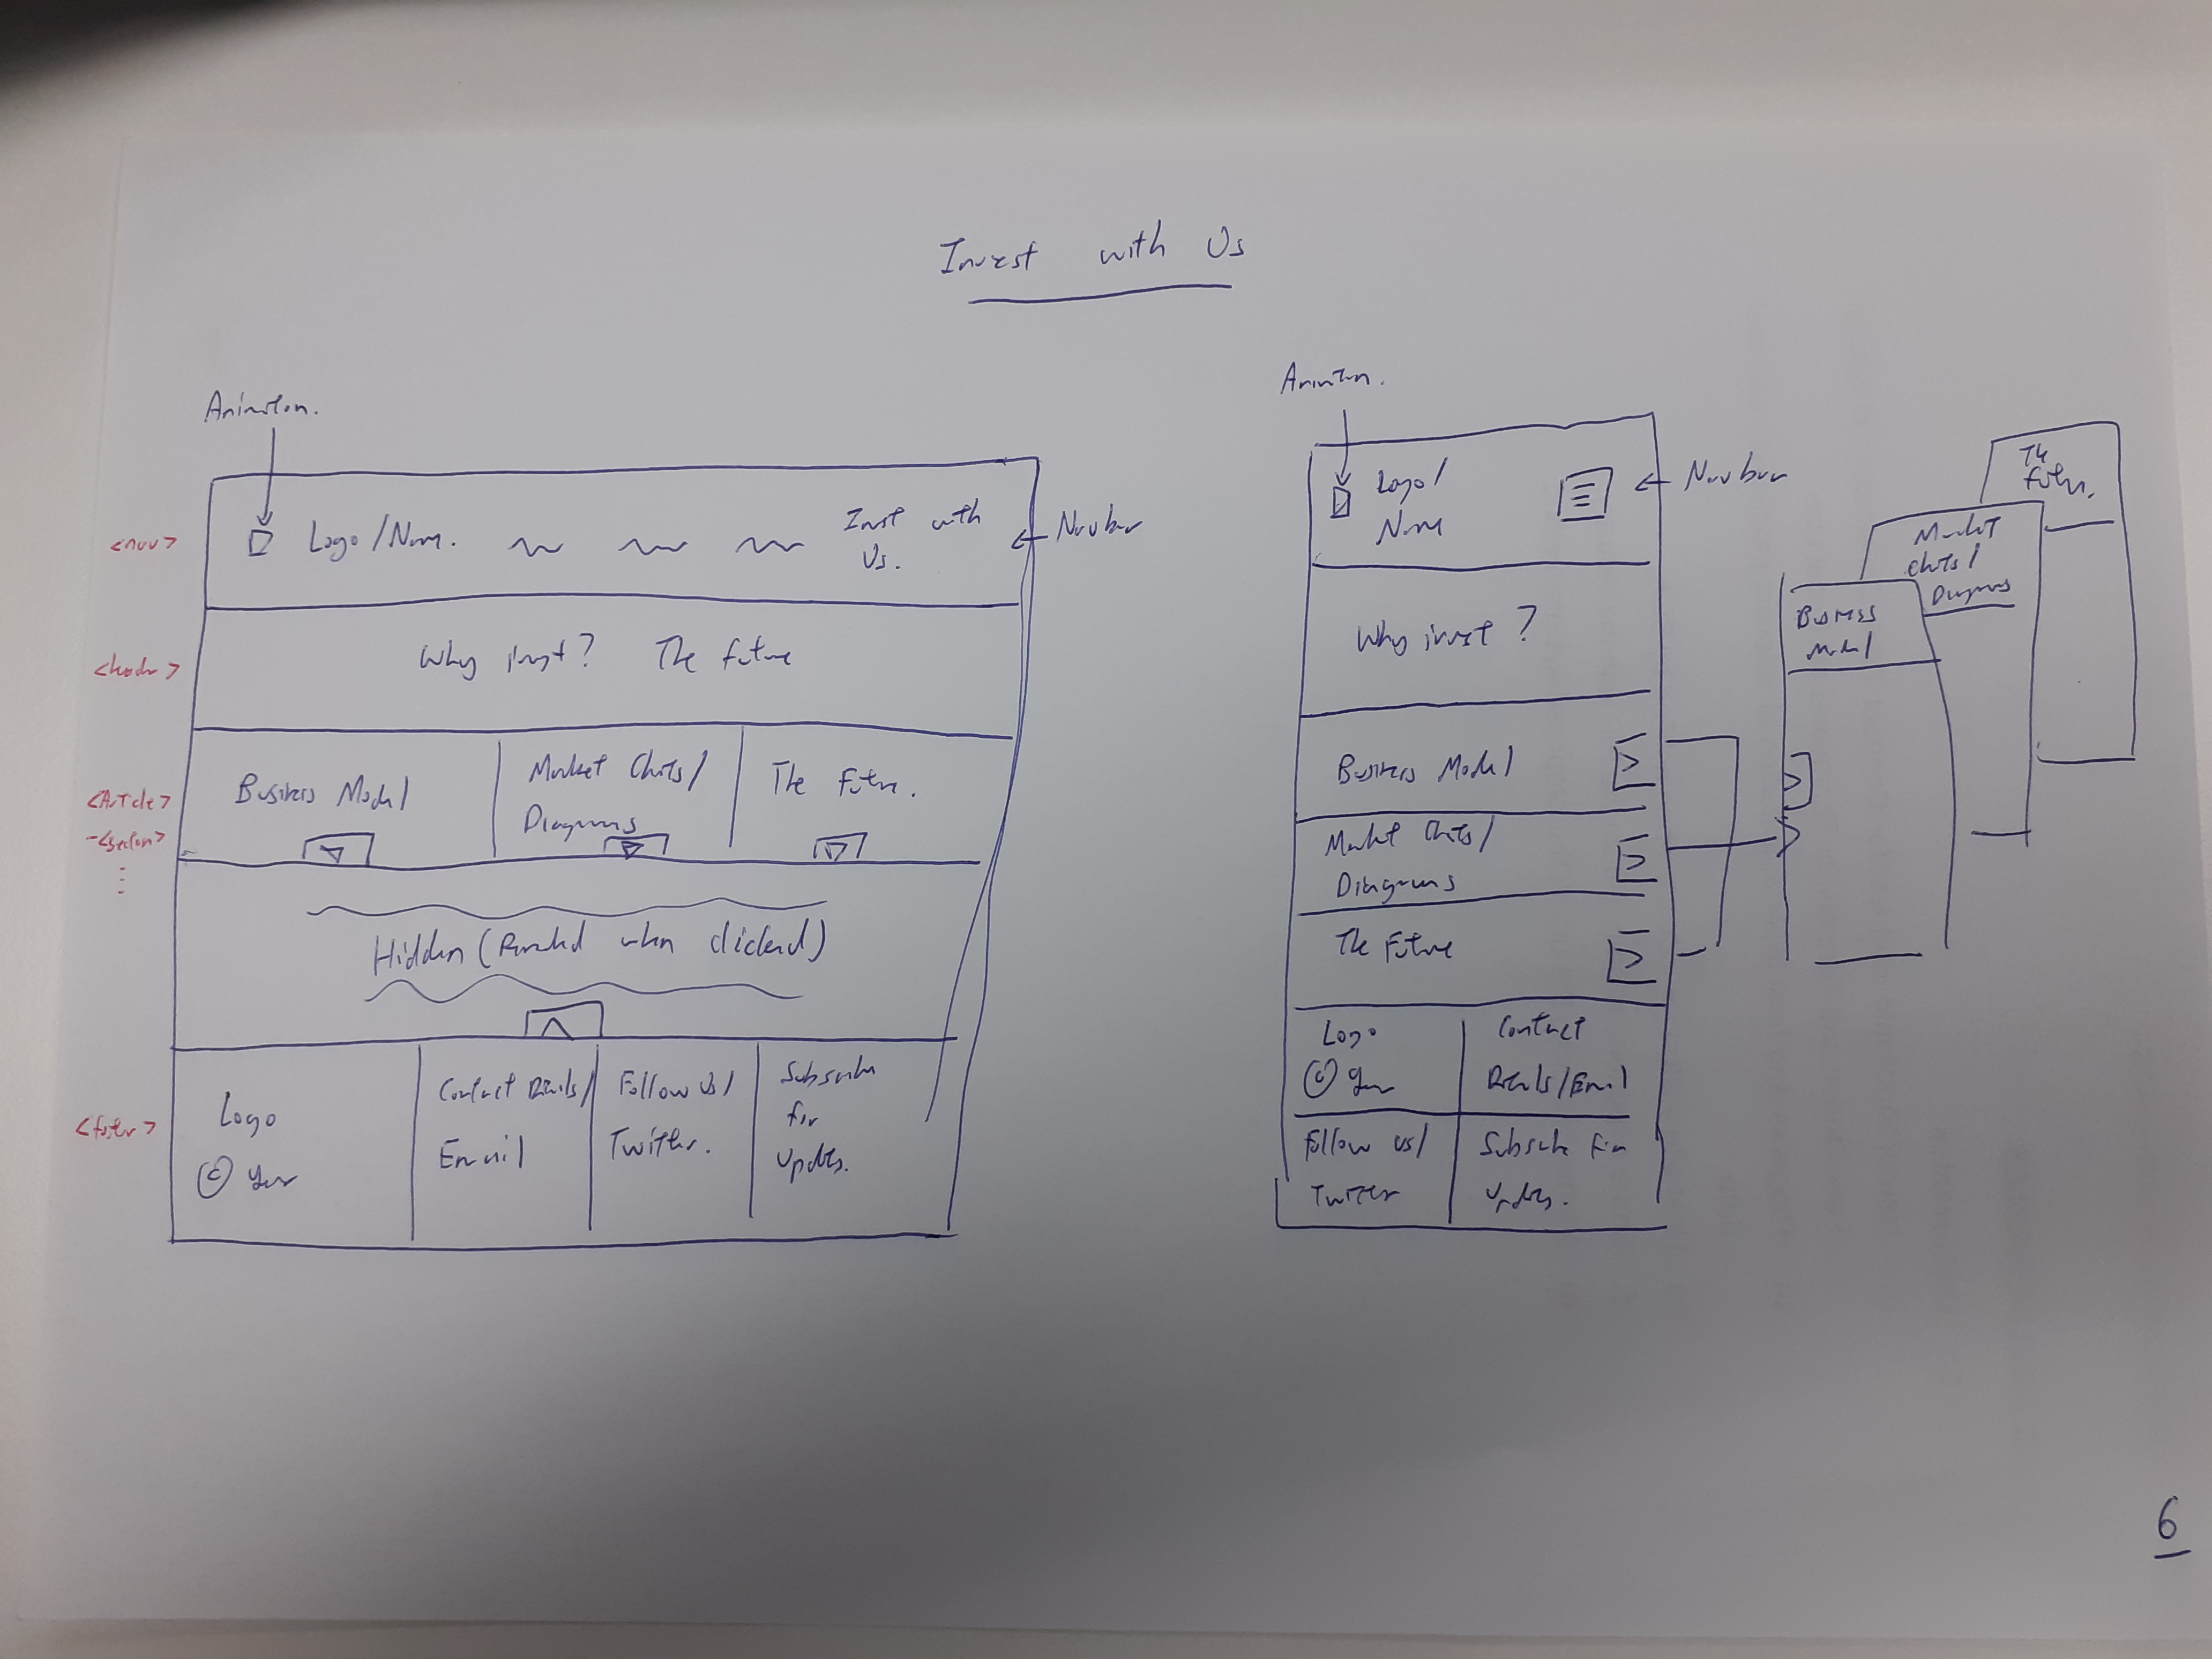 Invest with Us
Animation.
<nav>
Logo/Name.
Invest with
Us.
Navbar
<header>
Why invest? The future
<Article>
-<section>
Business Model
Market Charts/
Diagrams
The Future.
Hidden (Revealed when clicked)
<footer>
Logo
© Year
Contact Details/
Email
Follow Us/
Twitter.
Subscribe
for
updates.
Animation.
Logo/
Name
Navbar
Why invest?
Business Model
Market Charts/
Diagrams
The Future
Logo
© Year
Contact
Details/Email
Follow us/
Twitter
Subscribe for
updates.
Business
Model
Market
Charts/
Diagrams
The
Future.
6